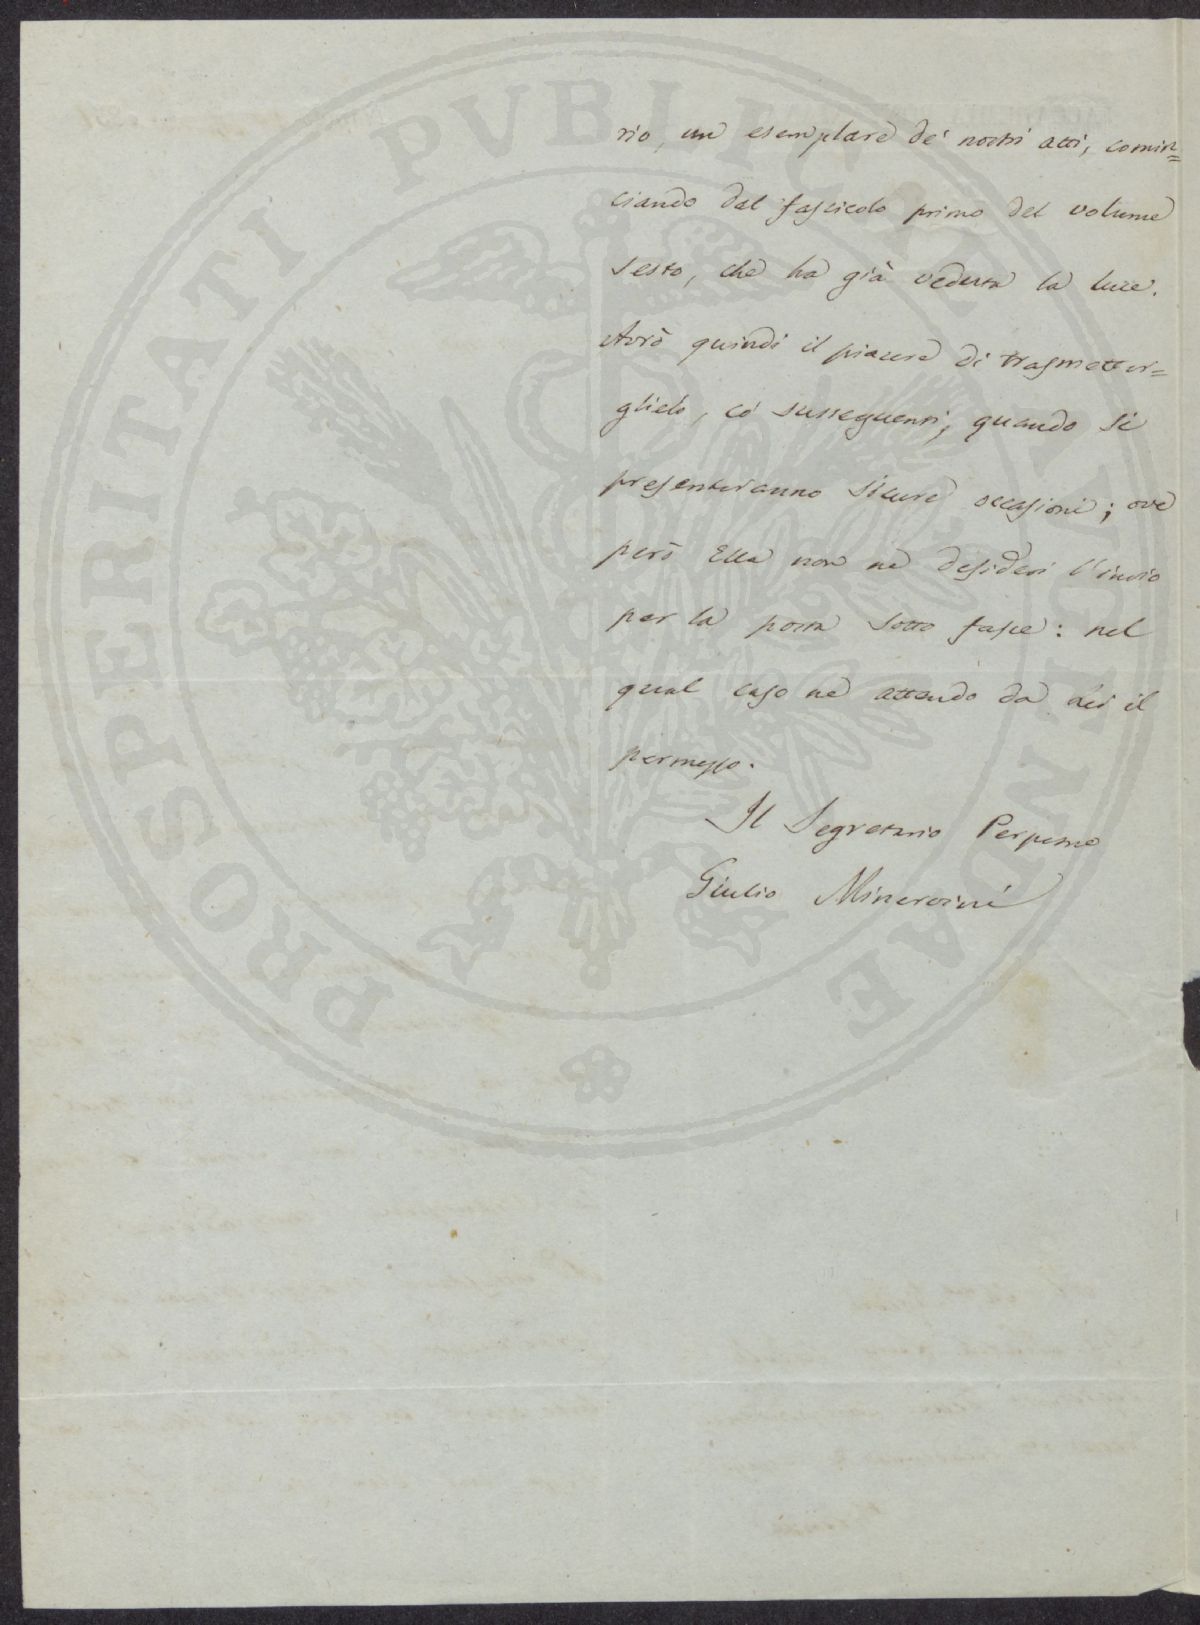 PROSPERITATI PVBLICAE AVGENDAE
rio, un esemplare de' nostri atti, comin=
ciando dal fascicolo primo del volume
sesto, che ha già veduta la luce.
Avrò quindi il piacere di trasmetter=
glielo, co' susseguenti, quando si
presenteranno sicure occasioni; ove
però Ella non ne desideri l'invio
per la posta sotto fasce: nel
qual caso ne attendo da Lei il
permesso.
Il Segretario Perpetuo
Giulio Minervini